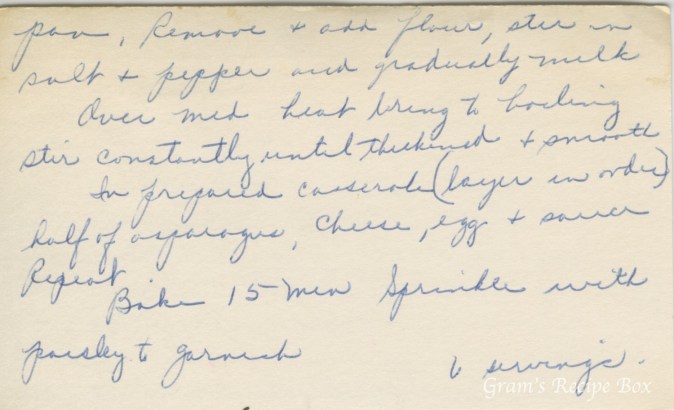 pan, Remove + add flour, stir in
salt + pepper and gradually milk
Over med heat bring to boiling
stir constantly until thickened + smooth
In prepared casserole (layer in order)
half of asparagus, cheese, egg + sauce
Repeat
Bake 15 min Sprinkle with
parsley to garnish
6 servings.
Gram's Recipe Box